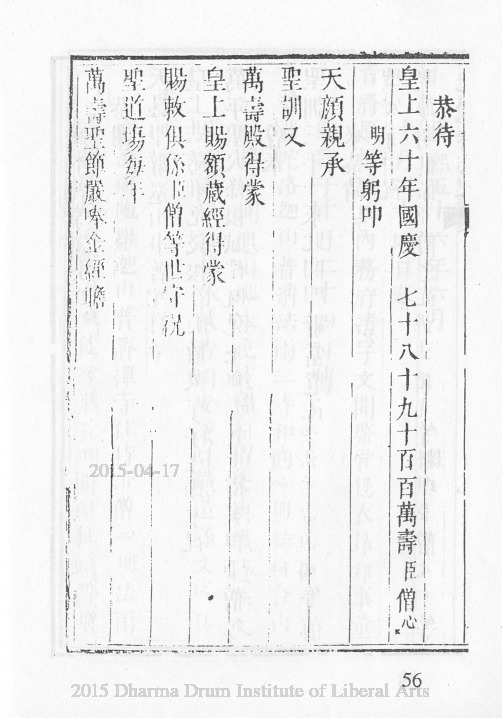 恭待
皇上六十年國慶七十八十九十百百萬壽臣僧心
明等躬叩
天顏親承
聖訓又
萬壽殿得蒙
皇上賜額藏經得蒙
賜敕俱係臣僧等世守況
聖道場每年
萬壽聖節嚴奉金經瞻
2015-04-17
56
2015 Dharma Drum Institute of Liberal Arts